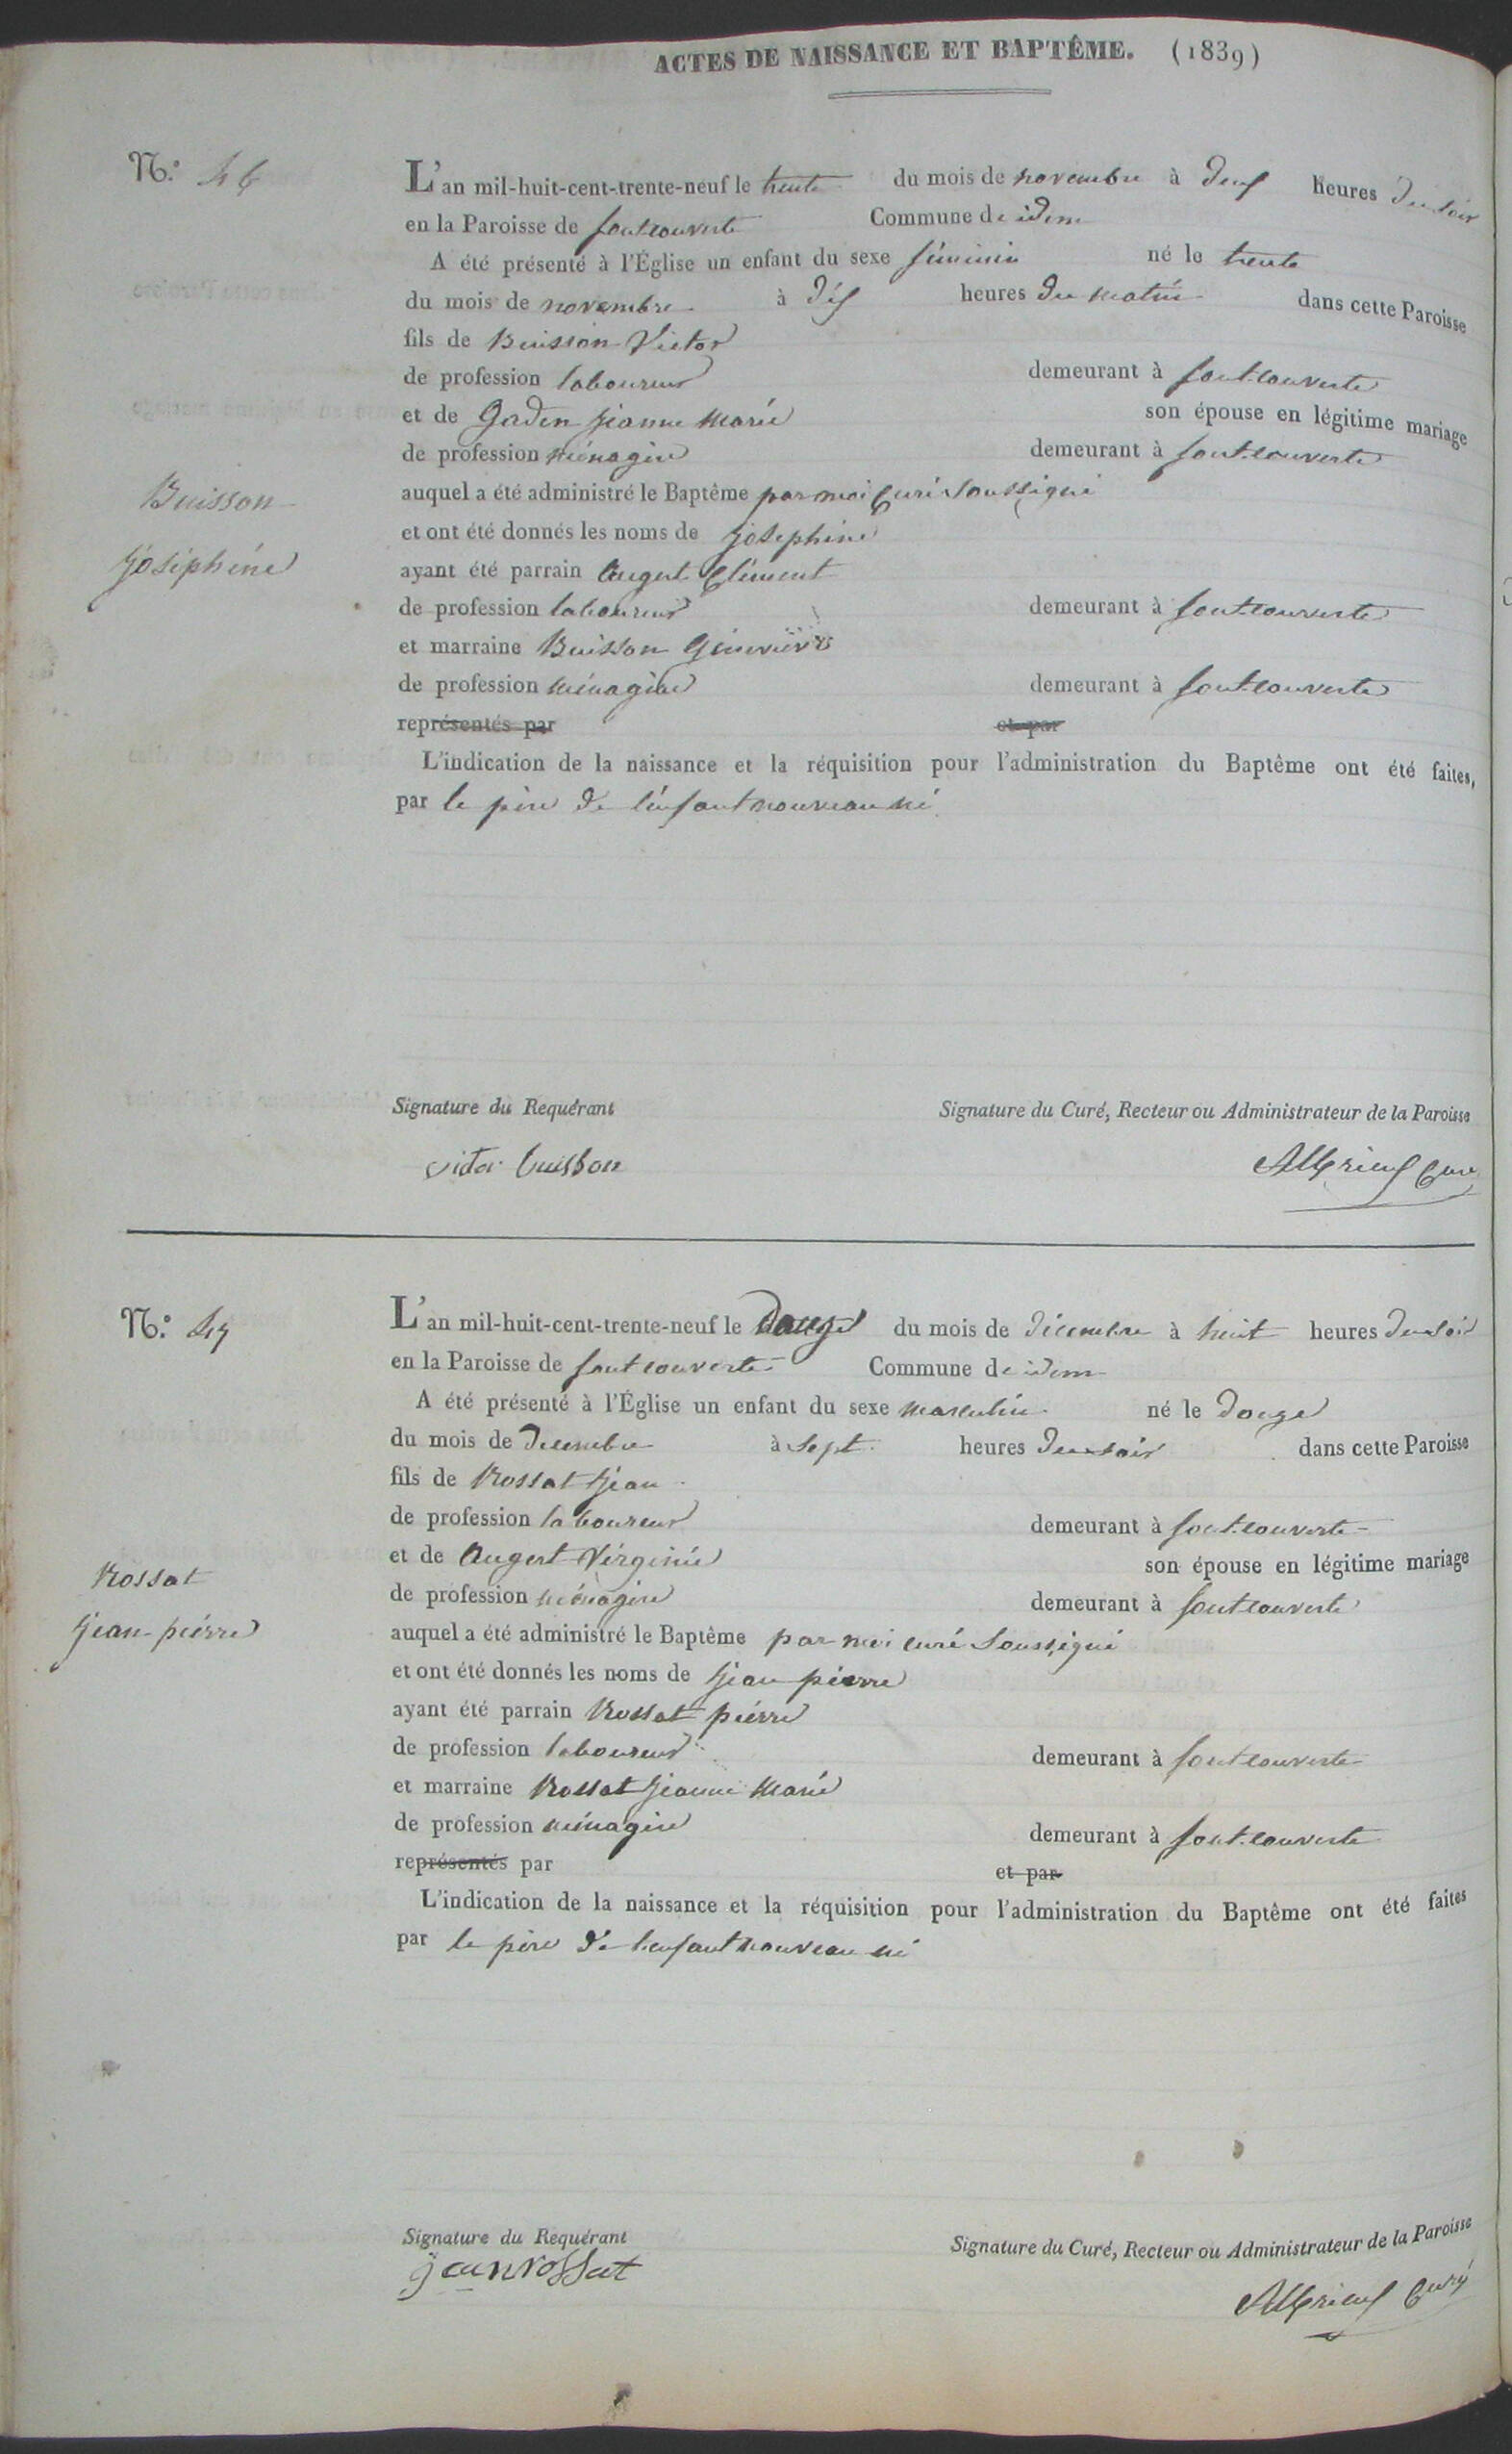 ACTES DE NAISSANCE ET BAPTÊME. (1839)
N.° 46
L'an mil-huit-cent-trente-neuf le trente du mois de novembre à deux heures du soir
en la Paroisse de fontcouverte Commune de idem
A été présenté à l'Église un enfant du sexe féminin né le trente
du mois de novembre à dix heures du matin dans cette Paroisse
fils de Buisson Victor
de profession laboureur demeurant à fontcouverte
et de Gadin Jeanne Marie son épouse en légitime mariage
de profession ménagère demeurant à fontcouverte
Buisson
Joséphine
auquel a été administré le Baptême par moi Curé soussigné
et ont été donnés les noms de Joséphine
ayant été parrain Augert Clément
de profession laboureur demeurant à fontcouverte
et marraine Buisson Geneviève
de profession ménagère demeurant à fontcouverte
représentés par et par
L'indication de la naissance et la réquisition pour l'administration du Baptême ont été faites,
par le père de l'enfant nouveau né
Signature du Requérant Signature du Curé, Recteur ou Administrateur de la Paroisse
victor buisson Curé
N.° 47
L'an mil-huit-cent-trente-neuf le douze du mois de décembre à huit heures du soir
en la Paroisse de fontcouverte Commune de idem
A été présenté à l'Église un enfant du sexe masculin né le douze
du mois de decembre à sept heures du soir dans cette Paroisse
fils de Rossat Jean
de profession laboureur demeurant à fontcouverte
et de Augert Virginie son épouse en légitime mariage
de profession ménagère demeurant à fontcouverte
Rossat
Jean-pierre
auquel a été administré le Baptême par moi curé soussigné
et ont été donnés les noms de Jean pierre
ayant été parrain Rossat pierre
de profession laboureur demeurant à fontcouverte
et marraine Rossat Jeanne Marie
de profession ménagère demeurant à fontcouverte
représentés par et par
L'indication de la naissance et la réquisition pour l'administration du Baptême ont été faites
par le père de l'enfant nouveau né
Signature du Requérant Signature du Curé, Recteur ou Administrateur de la Paroisse
jean rossat Curé